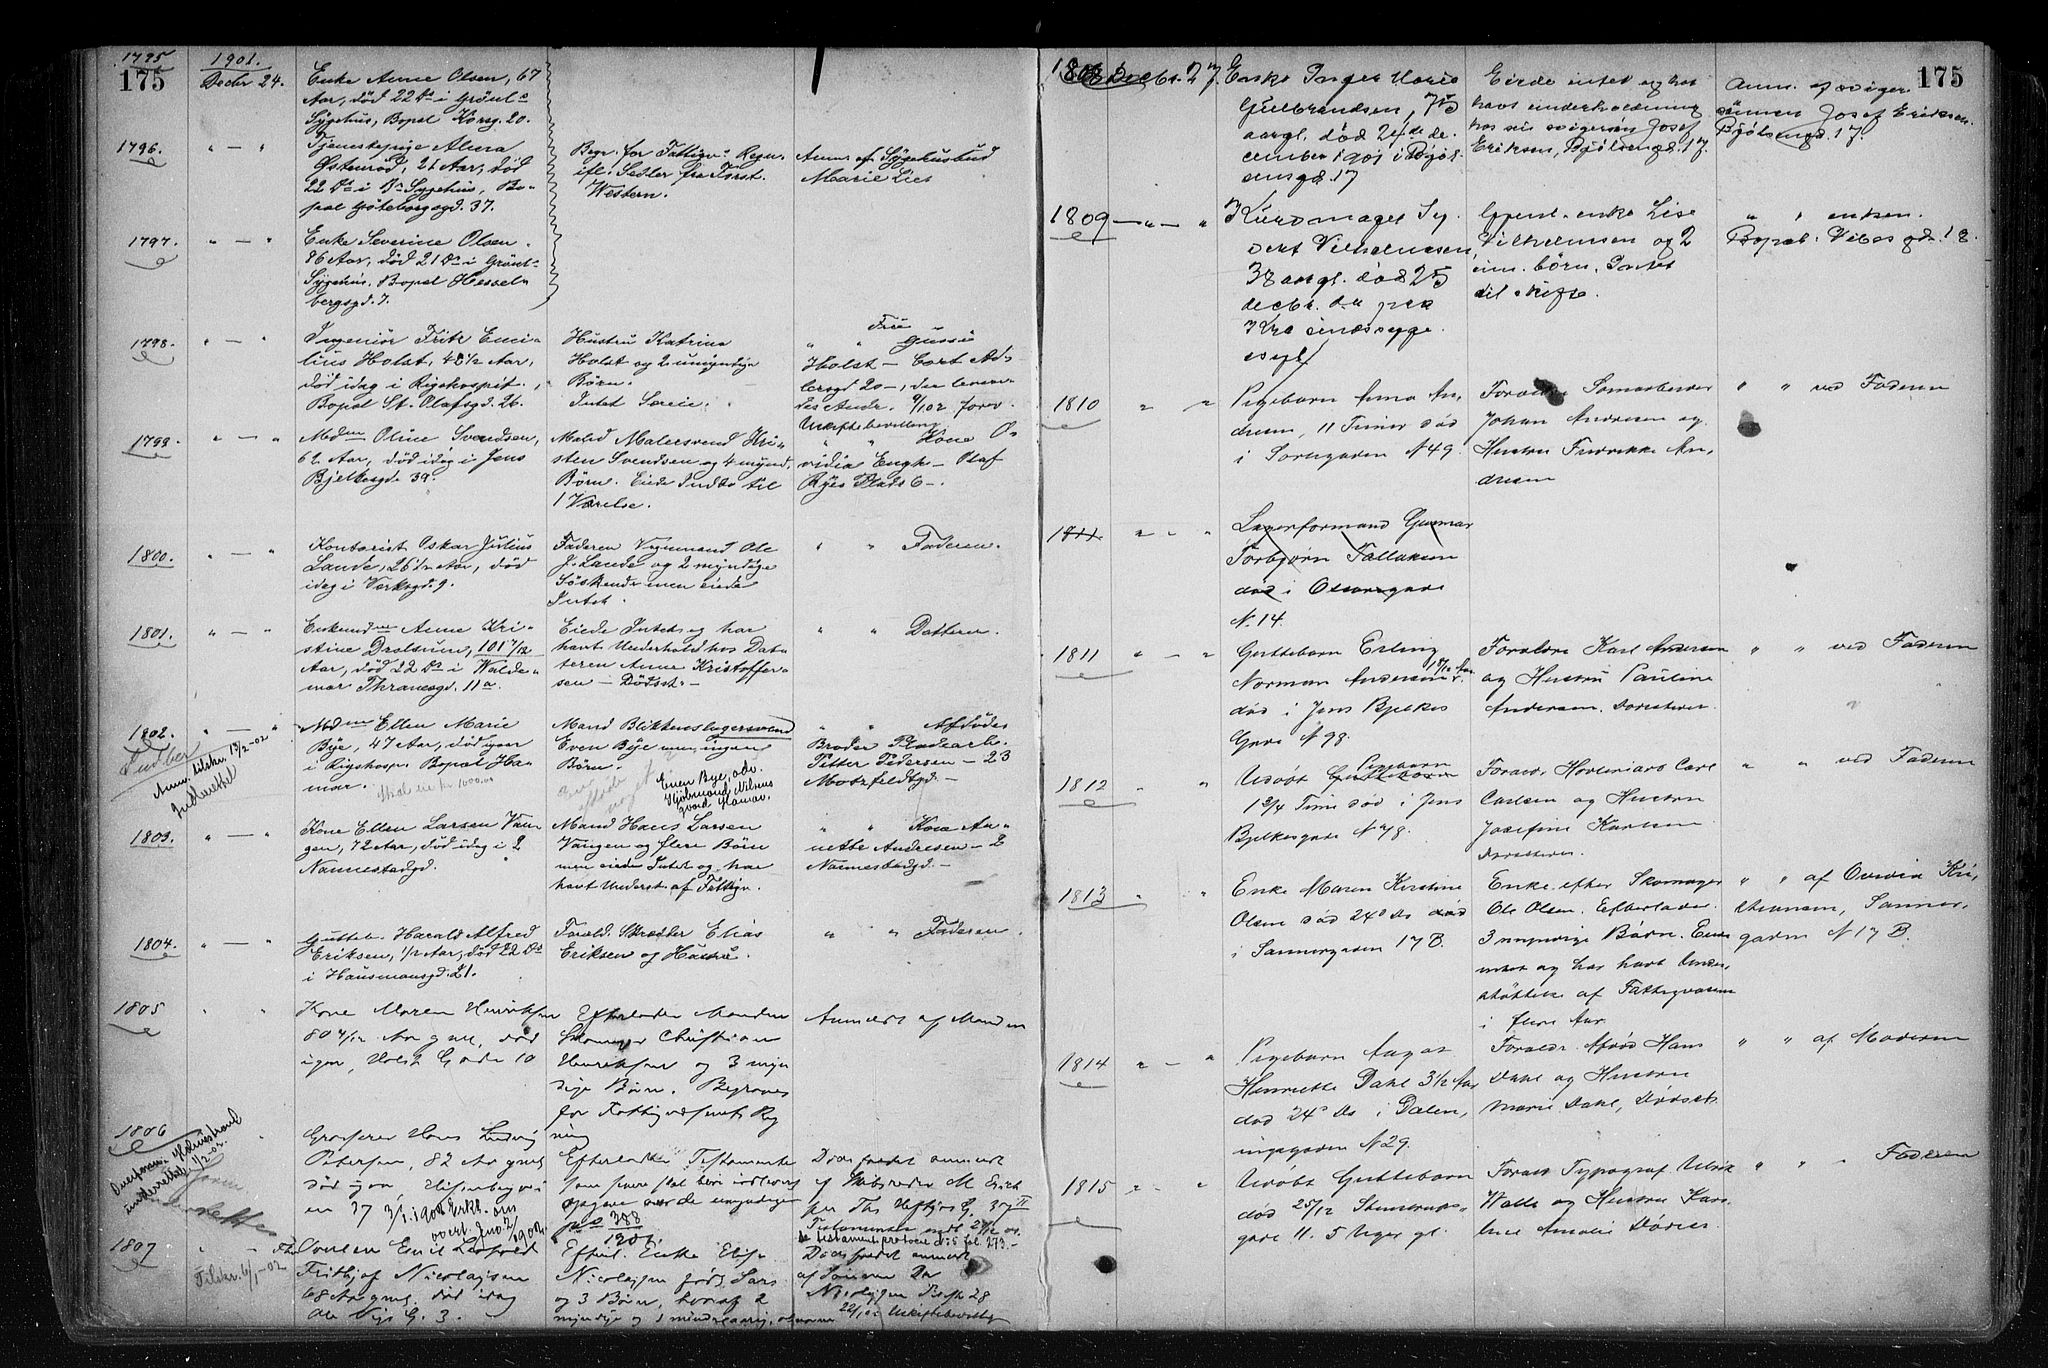 1795
175
1901.
Decbr 24.
Enke Anne Olsen, 67
Aar, død 22 Ds i Grønl.
Sygehus, Bopæl Korsg. 20.
1796.
" — "
Tjenestepige Alma
Østenrød, 21 Aar, død
22 Ds i Ds Sygehus, Bo-
pæl Göteborggd. 37.
Begr. for Fattigv. Regn.
ifl. Sedler fra Forst.
Western.
Anm. af Sygehusbud
Marie Lies
1797.
" — "
Enke Severine Olsen
86 Aar, død 21 Ds i Grønl.
Sygehus. Bopæl Hessel-
bergsgd. 7.
1798.
" — "
Ingeniør Fritz Emi-
lius Holst, 48 1/2 Aar,
død idag i Rigshospit.,
Bopæl St. Olafsgd. 26.
Hustru Katrine
Holst og 2 umyndige
Børn.
Intet Særeie.
Frü
" " Gussie
Holst — Cort Ad-
lersgd 20 —,
9/1 02
Uskiftebevilling
1799.
" — "
Mdmen Oline Svendsen,
62 Aar, død idag i Jens
Bjelkesgd. 39.
Mand Malersvend Kri-
sten Svendsen og 4 mynd.
Børn. Eiede Indbo til
1 Værelse.
" " Kone O-
vidia Engh — Olaf
Ryes Plads 6 —.
1800.
" — "
Kontorist Oskar Julius
Lande, 26 1/2 Aar, død
idag i Verksgd. 9.
Faderen Vognmand Ole
J. Lande og 2 myndige
Søskende men eiede
Intet.
" " Faderen.
1801.
" — "
Enkemdme Anne Kri-
stine Drolsum, 101 7/12
Aar, død 22 Ds i Walde-
mar Thranesgd. 11a.
Eiede Intet og har
havt Underhold hos Dat-
teren Anne Kristoffer-
sen — Dødsst. —
" " Datteren.
1802.
" — "
Anm. tilskr. 13/2-02
Mdmen Ellen Marie
Bye, 47 Aar, død igaar
i Rigshosp. Bopæl Ha-
mar.
Mand Blikkenslagersvend
Even Bye men ingen
Børn.
Even Bye, adr.
Nilsens
Hamar.
" " Afdødes
Broder Pladsarb.
Petter Pedersen — 23
Motzfeldtgd. —
1803.
" — "
Kone Ellen Larsen Van-
gen, 72 Aar, død idag i 2
Nannestadgd.
Mand Hans Larsen
Vangen og flere Børn
men eiede Intet og har
havt Underst. af Fattigv.
" " Kone An-
nette Andresen — 2
Nannestadgd. —
1804.
" — "
Gutteb. Harald Alfred
Eriksen, 1/2 Aar, død 22 Ds
i Hausmansgd. 21.
Foræld. Skræder Elias
Eriksen og Hustru.
" " Faderen.
1805
" "
Kone Maren Henriksen
80 4/12 Aar gml, død
igaar, Holst Gade 10
Efterlader Manden
Skomager Christian
Henriksen og 3 myn
dige Børn. Begraves
for Fattigvæsenets Reg
ning
Anmeldt af Manden
1806
Grosserer Hans Ludvig
Petersen, 82 Aar gml
død igaar,
Efterlader Testamente
388
1901.
Dødsfaldet anmeldt
Testamentsprotocol No 5 fol. 273. —
1807
" "
Tilskr. 4/1-02
Emil Leopold
Fritjof Nicolaysen
68 Aar gml. død idag
Ole Vigs G. 3.
Efterl. Enke Elise
Nicolaysen født Lars
og 3 Børn, hvoraf 2
myndige og 1 mindreaarig,
Dødsfaldet anmeldt
af Sønnen Dr
Nicolaysen
22/1 02 Uskiftebevilling
1808
Decbr. 27.
Enke Inger Marie
Gulbrandsen, 75
aargl. død 24de de-
cember 1901 i Bjøl-
sensgd. 17
Eiede intet og har
havt underholdning
hos sin svigersøn Josef
Eriksen, Bjølsengd. 17.
Anm. af sviger
sønnen Josef Eriksen.
Bjølsengd. 17.
175
1809
— " — "
Kurvmager Sy-
vert Vilhelmsen,
38 aargl. død 25
decbr. ds paa
Kra sindssyge
asyl
Efterl. enke Lise
Vilhelmsen og 2
um. børn. Intet
til skifte.
" " enken.
Bopæl. Vibesgd. 18.
1810
" "
Pigebarn Anna An-
dresen, 11 Timer død
i Sorligaden N 49.
Forældre Stenarbeider
Johan Andresen og
Hustru Fredrikke An-
dresen
" " ved Faderen
1811
" — "
Lagerformand Gunnar
Torbjørn Tallaksen
død i Osloesgade
N. 14.
1811
" — "
Guttebarn Erling
Norman Andersen 1 8/12 Aar
død i Jens Bjelkes
Gade N 98.
Forældre Karl Andersen
og Hustru Pauline
Andersen. Dødsstedet.
" " ved Faderen
1812
"
Udøbt Pigebarn
1 3/4 Time død i Jens
Bjelkesgade N 78.
Forældr Carl
Carlsen og Hustru
Josefine Karlsen
Dødsstedet.
" " ved Faderen
1813
" "
Enke Maren Kirstine
Olsen død 24 Ds død
i Sannergaden 17 B.
Enke efter Skomager
Ole Olsen. Efterlader
3 myndige Børn. Eiede
intet og har havt Under-
støttelse af Fattigvæsen
i flere Aar
" " af Ovidia Kri-
stiansen, Sanner-
gaden N 17 B.
1814
" — "
Pigebarn Aagot
Henriette Dahl 3 1/2 Aar
død 24 Ds i Dælen-
ingagaden N 29.
Forældr. Hans
Dahl og Hustru
Marie Dahl, Dødsst.
" " af Moderen
1815
" — "
Udøbt Guttebarn
død 25/12 Stenstrups-
gade 11. 5 Uger gl.
Foræld Typograf Ulrik
Walle og Hustru Karo-
line Amalie Dødss.
" " " Faderen